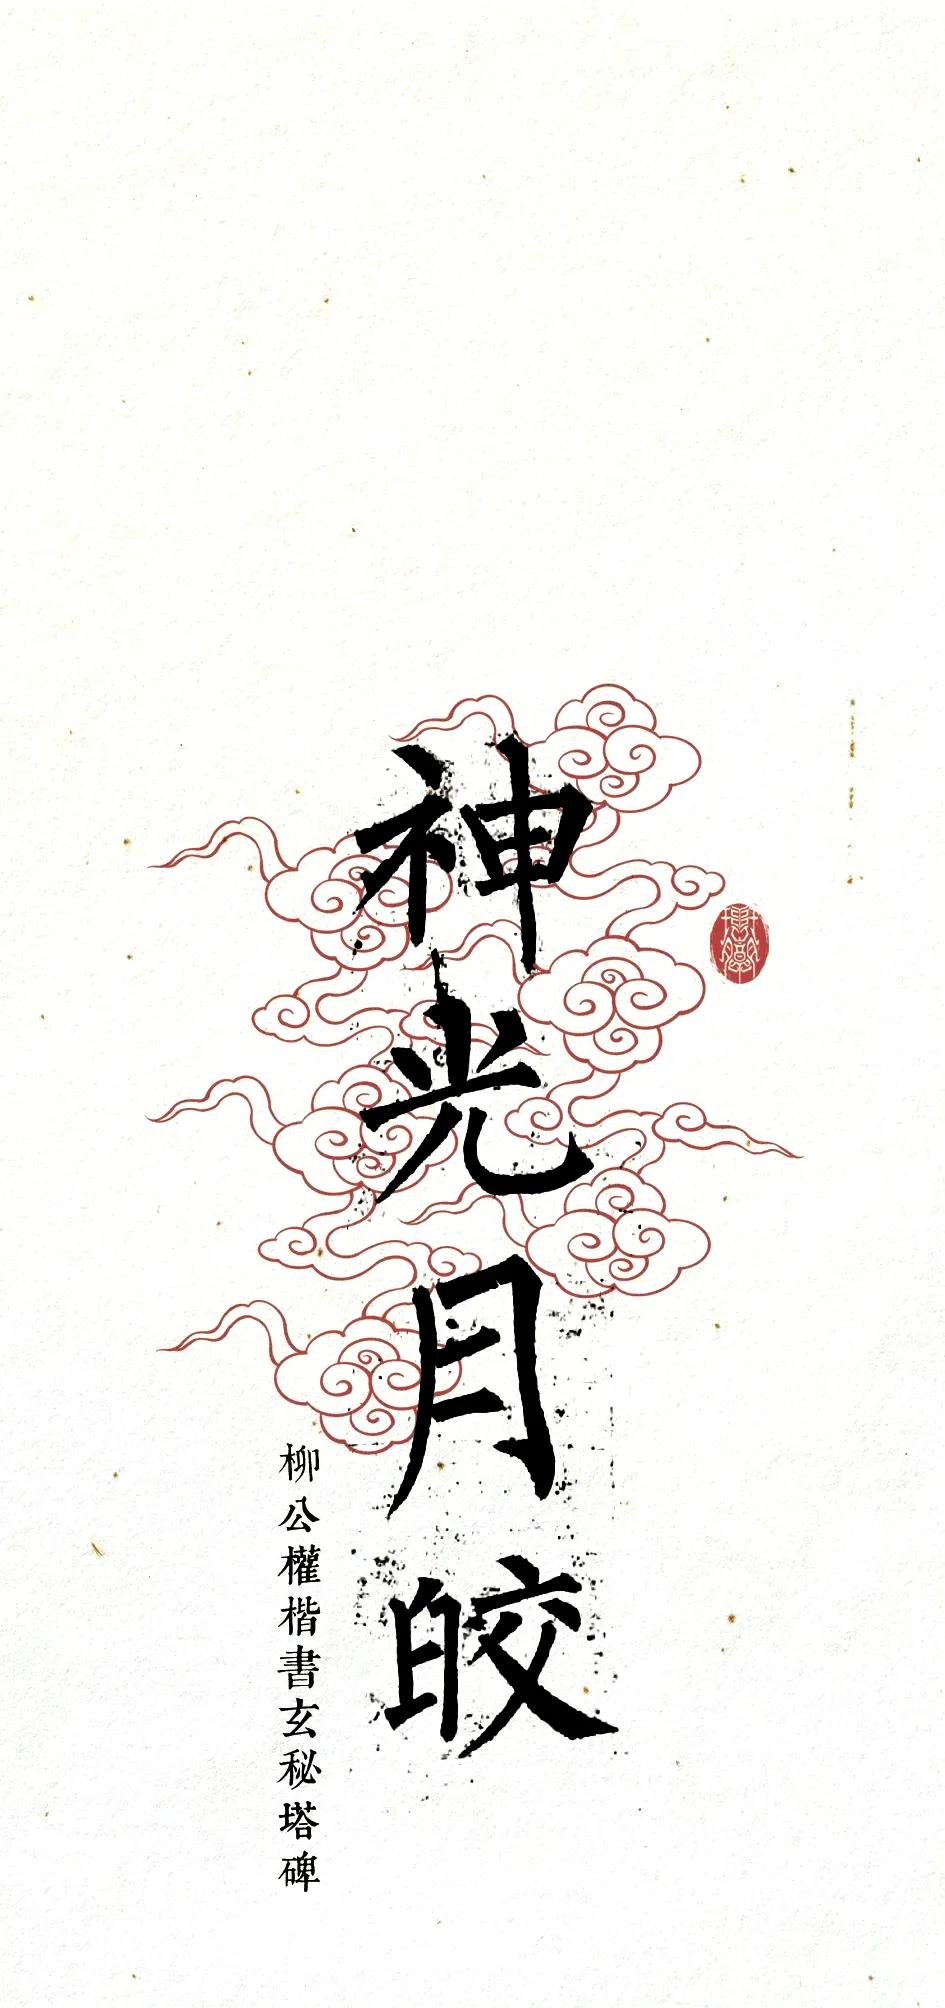 神光月皎
柳公權楷書玄秘塔碑